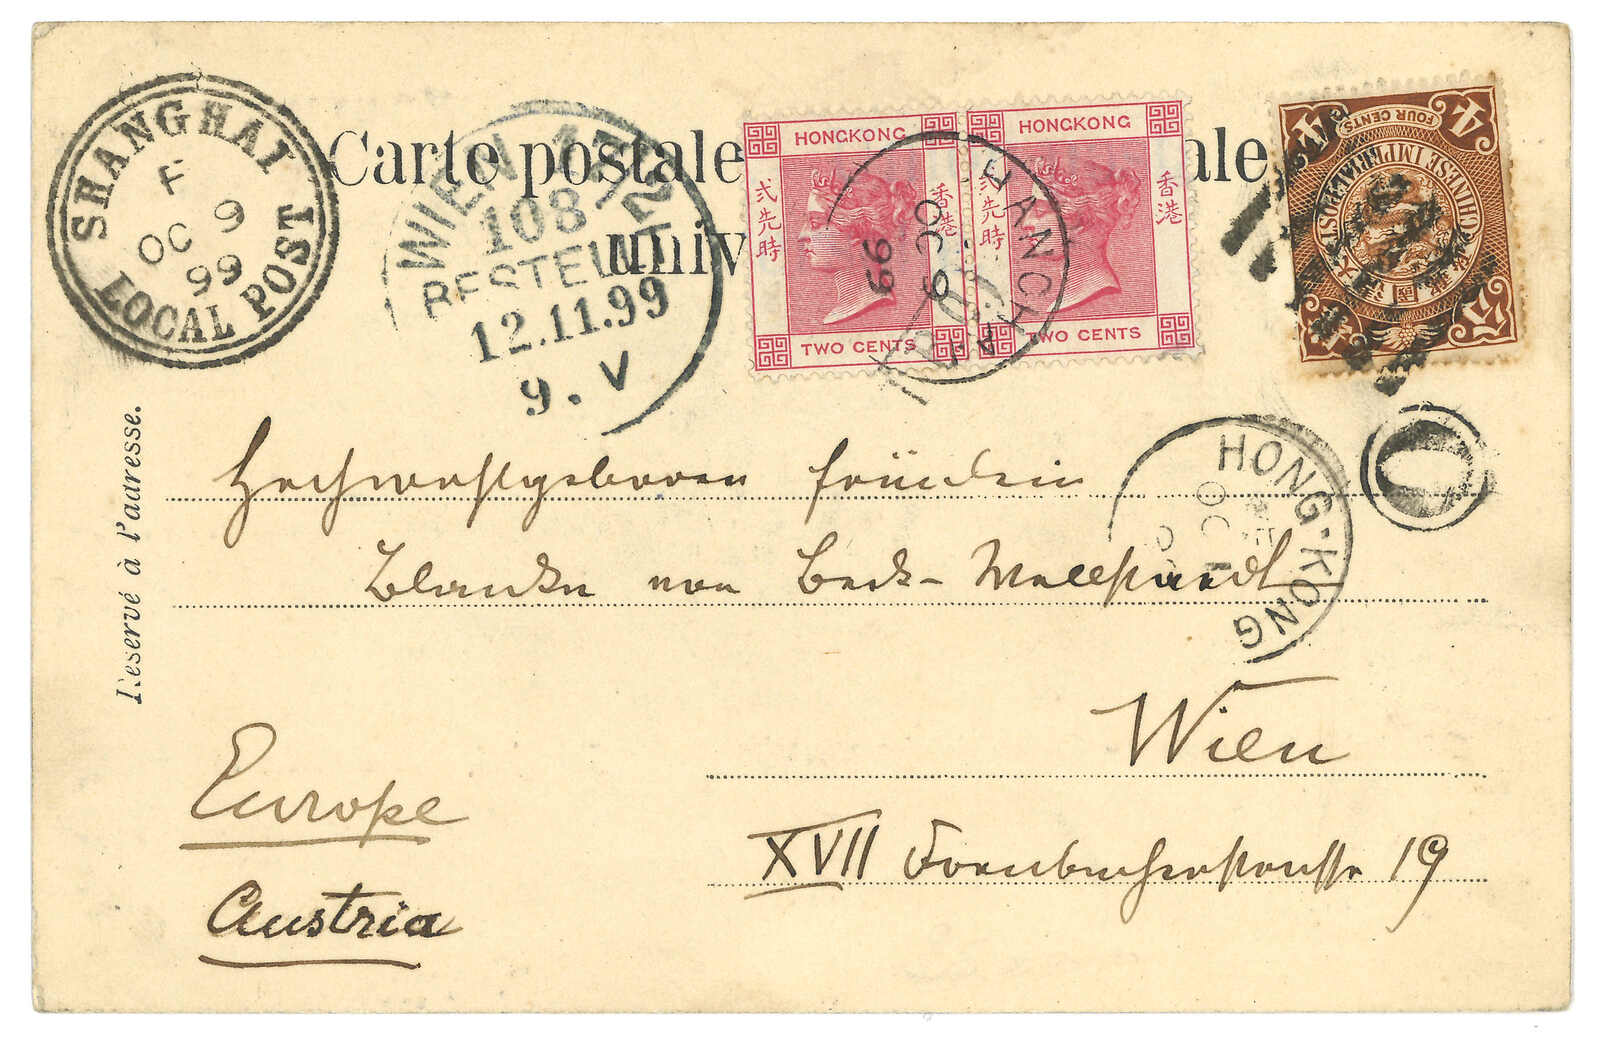 SHANGHAI
LOCAL POST
F
OC 9
99
Carte postale
ale
univ
WIEN
108
BESTELLT
12.11.99
9. V
HONGKONG
香港
弍先時
TWO CENTS
HONGKONG
香港
弍先時
TWO CENTS
OC 9
99
4
FOUR CENTS
4
CHINESE IMPERIAL POST
HONG-KONG
OC
Reservé à l'adresse.
Hochwohlgeboren Fräulein
Blanka von Beck-
Wien
XVII
19
Europe
Austria